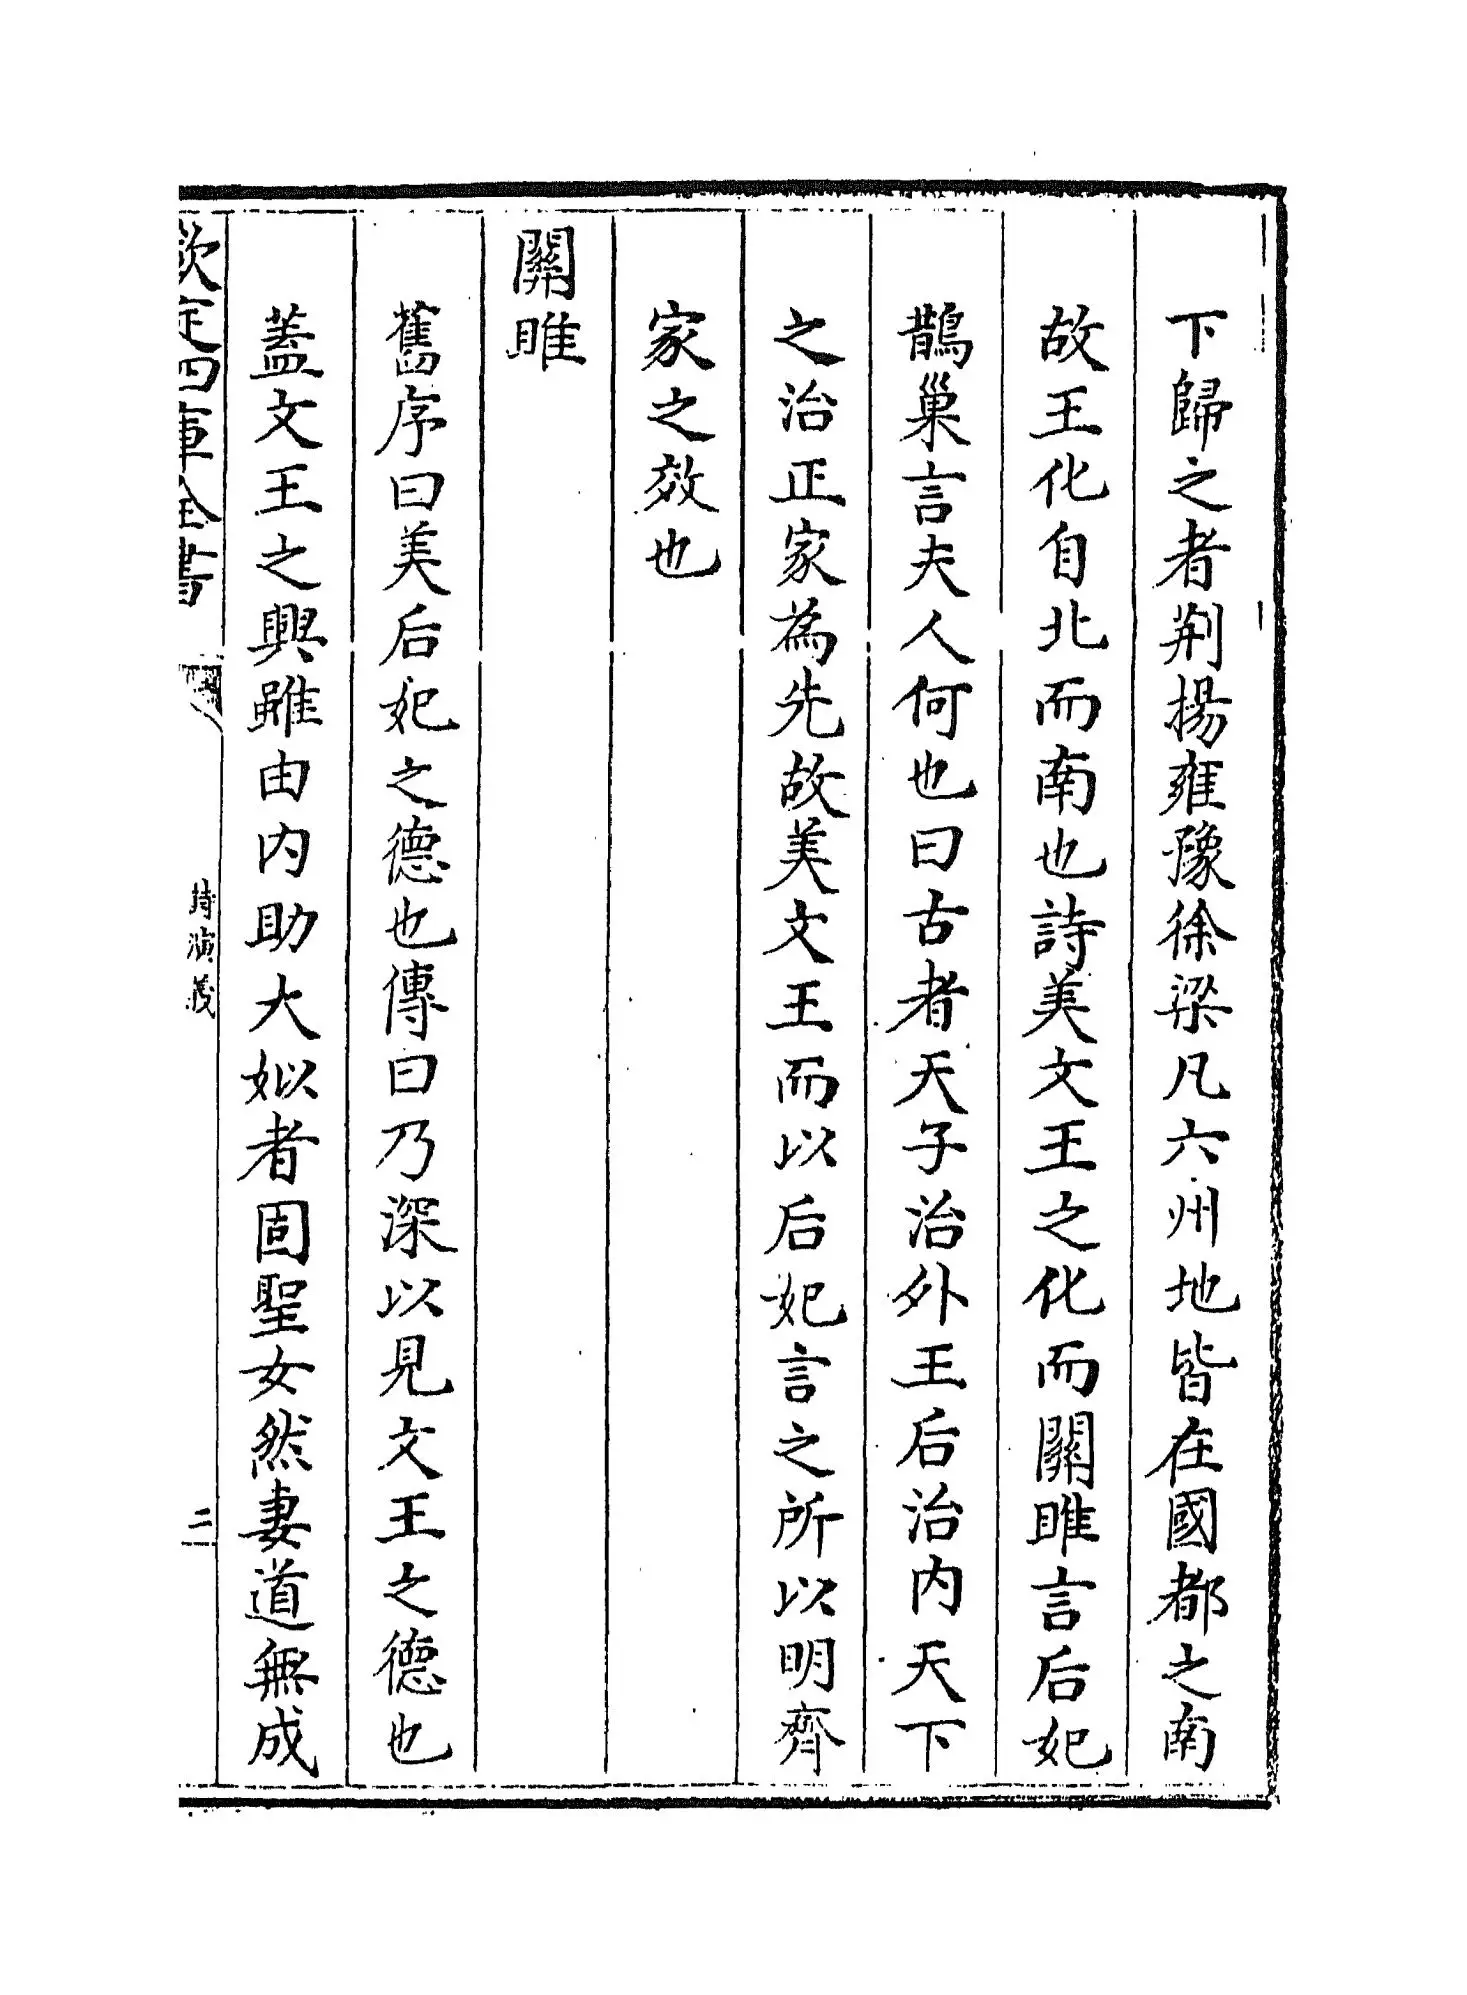 下歸之者荆揚雍豫徐梁凡六州地皆在國都之南
故王化自北而南也詩美文王之化而關雎言后妃
鵲巢言夫人何也曰古者天子治外王后治内天下
之治正家為先故美文王而以后妃言之所以明齊
家之效也
關雎
舊序曰美后妃之德也傳曰乃深以見文王之德也
蓋文王之興雖由内助大姒者固聖女然妻道無成
欽定四庫全書
詩演義
二